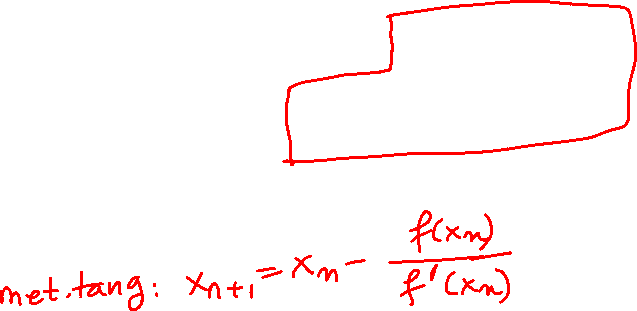 met.tang: xₙ₊₁ = xₙ - f(xₙ)/f'(xₙ)